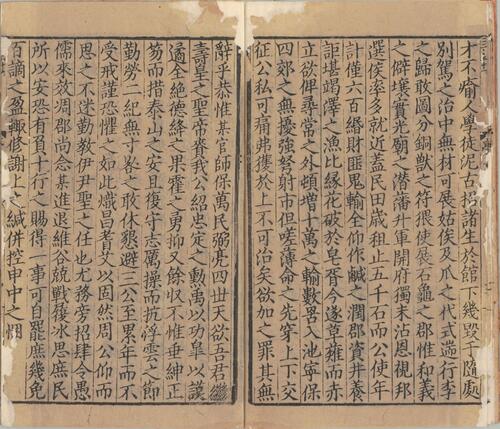 才不瘉人學徒泥古招諸生於舘下幾毀于隨處
別駕之治中無材可展姑俟及瓜之代式遄行李
之歸敢圖分銅獸之符猥使展石龜之郡惟和義
之僻壤實光廟之潛藩升軍開府獨未沾恩視邦
選侯率多就近蓋民田歲租止五千石而公使年
計僅六百緡財匪鬼輸全仰作鹹之潤郡資井養
詎堪竭澤之漁比緣花破於皂胥今遂草雍而赤
立欲俾尋常之外頓增十萬之輸數畧入池寧保
四郊之無擾強弩射市但嗟薄命之先穿上下交
征公私可痛弗獲於上不可治矣欲加之罪其無
辭乎恭惟某官師保萬民弼亮四世天欲五君繼
壽皇之聖帝賚我公紹忠定之勳萬以功皐以謨
適全絕德絳之果霍之勇抑又餘収不惟垂紳正
笏而措泰山之安且復守志厲操而抗浮雲之節
勤勞二紀無寸畧之敢休懇避三公至累年而不
受戒謹恐懼之如此熾昌耆艾以固然周公仰而
思之不迷勤教伊尹聖之任也尤務旁招肆令愚
儒來效凋郡尚念某進退維谷兢戰履冰思庶民
所以安恐有負十行之賜得一事可自罷庶幾免
百謫之盈輙修謝上之緘併控申中之悃